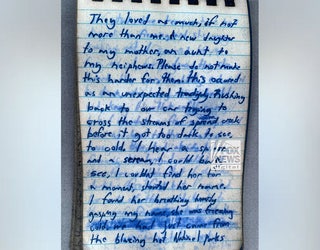 They loved as much, if not
more than me. A new daughter
to my mother, an aunt to
my nephews. Please do not make
this harder for them. this occured
as an unexpected tragedy. Rushing
back to our car trying to
cross the streams of spread creek
before it got too dark to see,
to cold. I hear a splash
and a scream, I could barely
see, I couldnt find her for
a moment, shouted her name.
I found her breathing heavily
gasping my name, she was freezing
cold, we had just came from
the blazing hot National parks
FOX
NEWS
digital